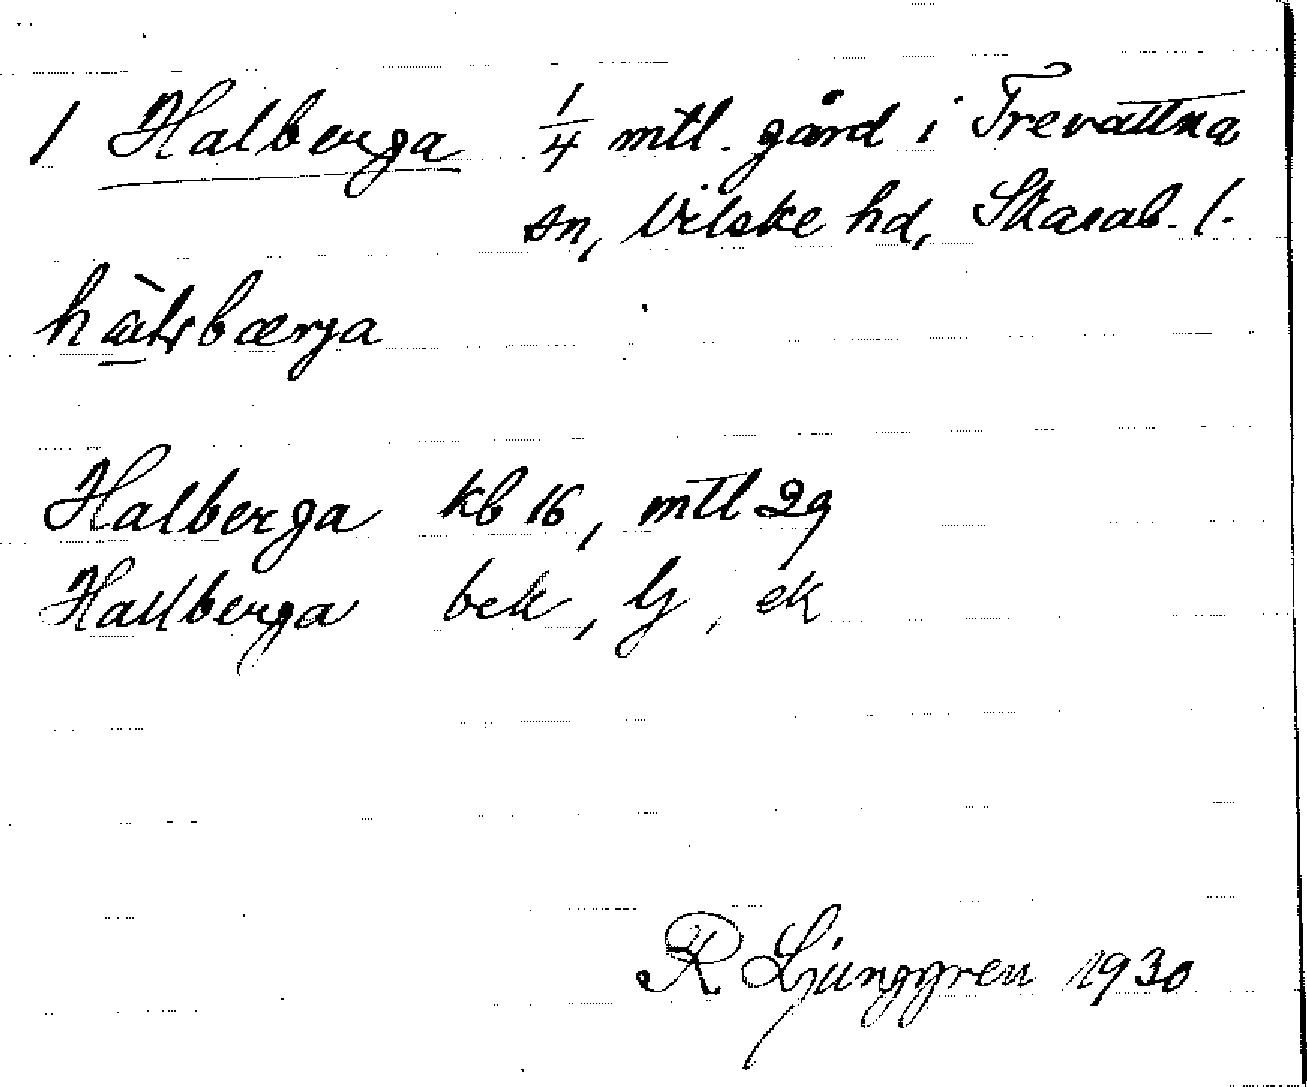 1 Halberga 1/4 mtl. gård i Trevattna
sn, Vilske hd, Skarab. l.
Halberga kb 16, mtl 29
Hallberga bek, Lj, ek
R Ljunggren 1930